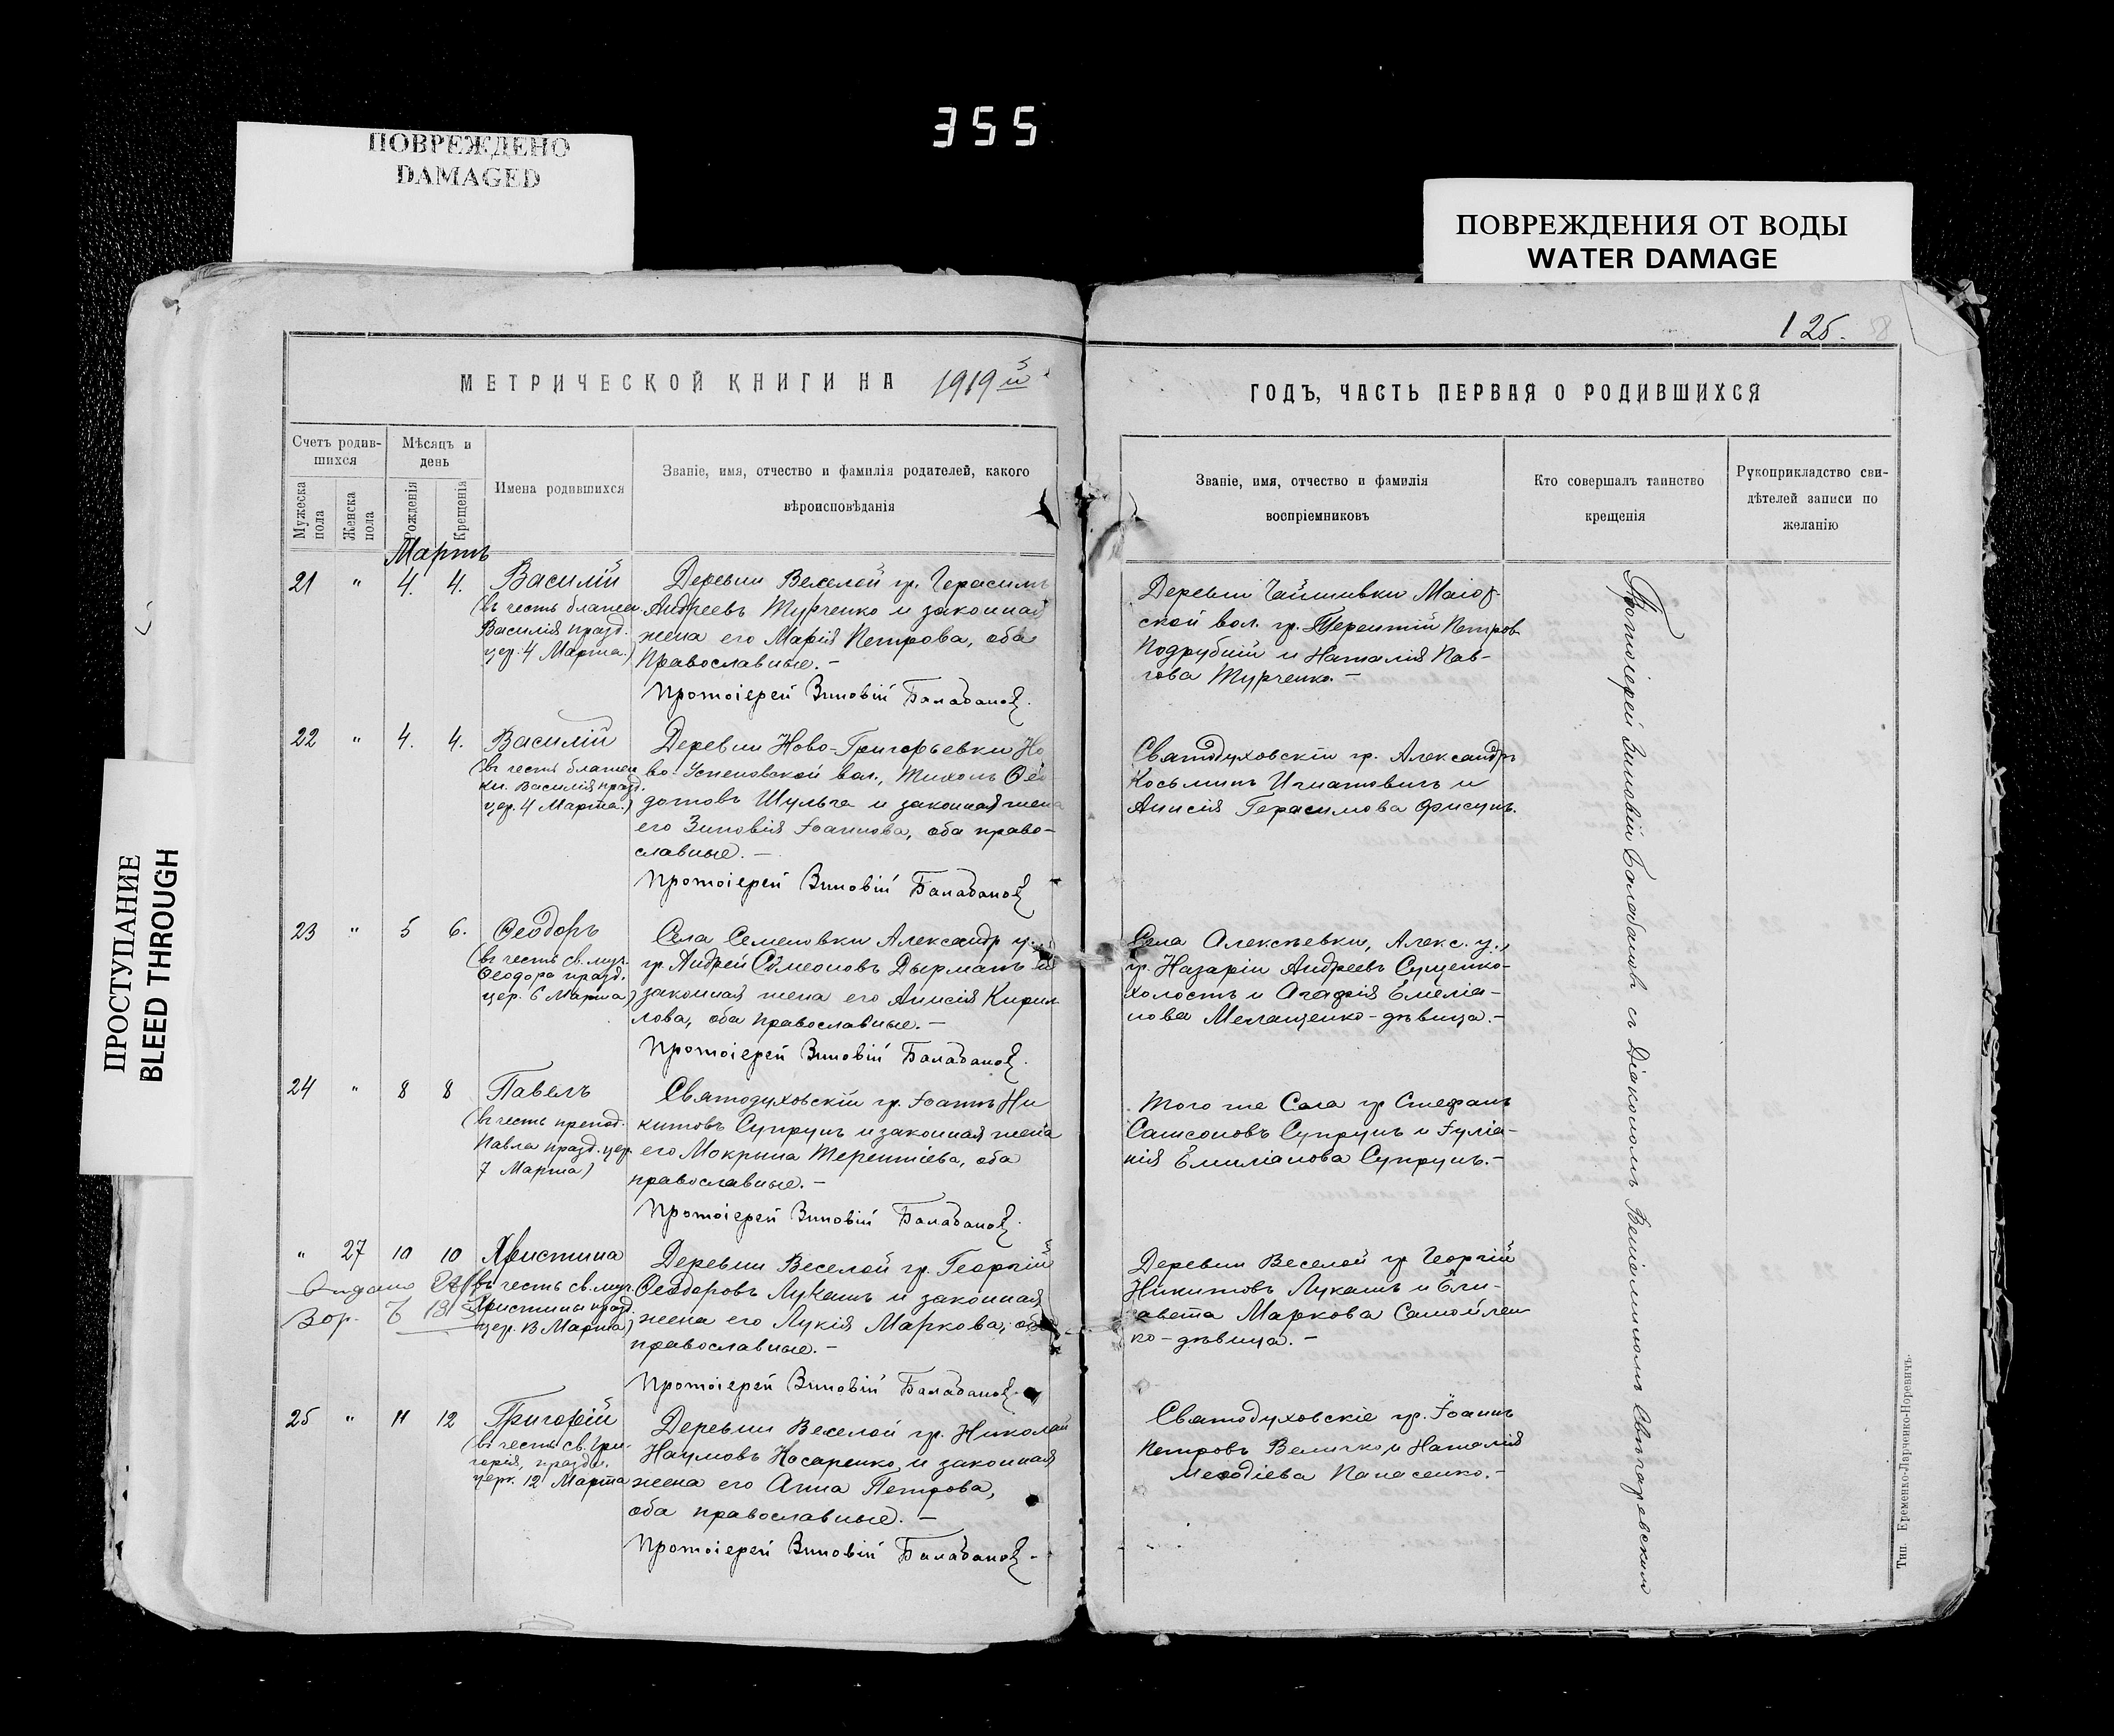 355
ПОВРЕЖДЕНО
DAMAGED
ПОВРЕЖДЕНИЯ ОТ ВОДЫ
WATER DAMAGE
ПРОСТУПАНИЕ
BLEED THROUGH
125.
МЕТРИЧЕСКОЙ КНИГИ НА 1919й
ГОДЪ, ЧАСТЬ ПЕРВАЯ О РОДИВШИХСЯ
Счетъ родив-
шихся
Мужеска
пола
Женска
пола
Мѣсяцъ и
день
Рожденія
Крещенія
Имена родившихся
Званіе, имя, отчество и фамилія родителей, какого
вѣроисповѣданія
Званіе, имя, отчество и фамилія
воспріемниковъ
Кто совершалъ таинство
крещенія
Рукоприкладство сви-
дѣтелей записи по
желанію
Мартъ
21 " 4. 4. Василій
(въ честь блажен.
Василія празд.
цер. 4 Марта.)
Деревни Веселой гр. Герасимъ
Андреевъ Турченко и законная
жена его Марія Петрова, оба
Православные. –
Протоіерей Зиновій Балабановъ.
Деревни Чайшивки Маіор-
ской вол. гр. Терентій Петров
Подрубній и Наталія Пав-
лова Турченко –
22 " 4. 4. Василій
(въ честь блажен
кн. Василія празд.
цер. 4 Марта.)
Деревни Ново-Григорьевки Но
во-Успеновской вол., Тихонъ Ѳео
дотовъ Шульга и законная жена
его Зиновія Іоаннова, оба право-
славные. –
Протоіерей Зиновій Балабановъ
Святодуховскіи гр. Александръ
Косьминъ Игнатовичъ и
Анисія Герасимова Фисунъ.
23 " 5 6. Ѳеодоръ
(въ честь св. муч.
Ѳеодора празд.
цер. 6 Марта)
Села Семеновки Александр у.,
гр. Андрей Сѵмеоновъ Дырманъ и
законная жена его Анисія Кирил
лова, оба православные. –
Протоіерей Зиновій Балабановъ.
Села Алексѣевки, Алекс. у.,
гр. Назарій Андреевъ Сущенко-
холостъ и Агафія Емеліа-
нова Мелащенко-дѣвица. –
24 " 8 8 Павелъ
(въ честь препод.
Павла празд. цер.
7 Марта)
Святодуховскій гр. Іоаннъ Ни
китовъ Супрунъ и законная жена
его Мокрина Терентіева, оба
православные. –
Протоіерей Зиновій Балабановъ.
Того же Села гр Стефанъ
Самсоновъ Супрунъ и Іуліа-
нія Емиліанова Супрунъ. –
" 27 10 10 Христина
(въ честь св. муч.
Христины празд.
цер. 13 Марта)
Деревни Веселой гр. Георгій
Ѳеодоровъ Лукашъ и законная
жена его Лукія Маркова, оба
православные. –
Протоіерей Зиновій Балабановъ.
Деревни Веселой гр Георгій
Никитовъ Лукашъ и Ели-
савета Маркова Самойлен
ко-дѣвица. –
25 " 11 12 Григорій
(въ честь св. Гри-
горія, праздн.
церк. 12 Марта
Деревни Веселой гр. Николай
Наумовъ Косаренко и законная
жена его Анна Петрова,
оба православные. –
Протоіерей Зиновій Балабановъ.
Святодуховскіе гр. Іоаннъ
Петровъ Величко и Наталія
Меѳодіева Панасенко. –
Протоіерей Зиновій Балабановъ съ Діакономъ Веніаминомъ Святогоревскимъ
Тип. Еременко-Ларченко-Норевичъ.